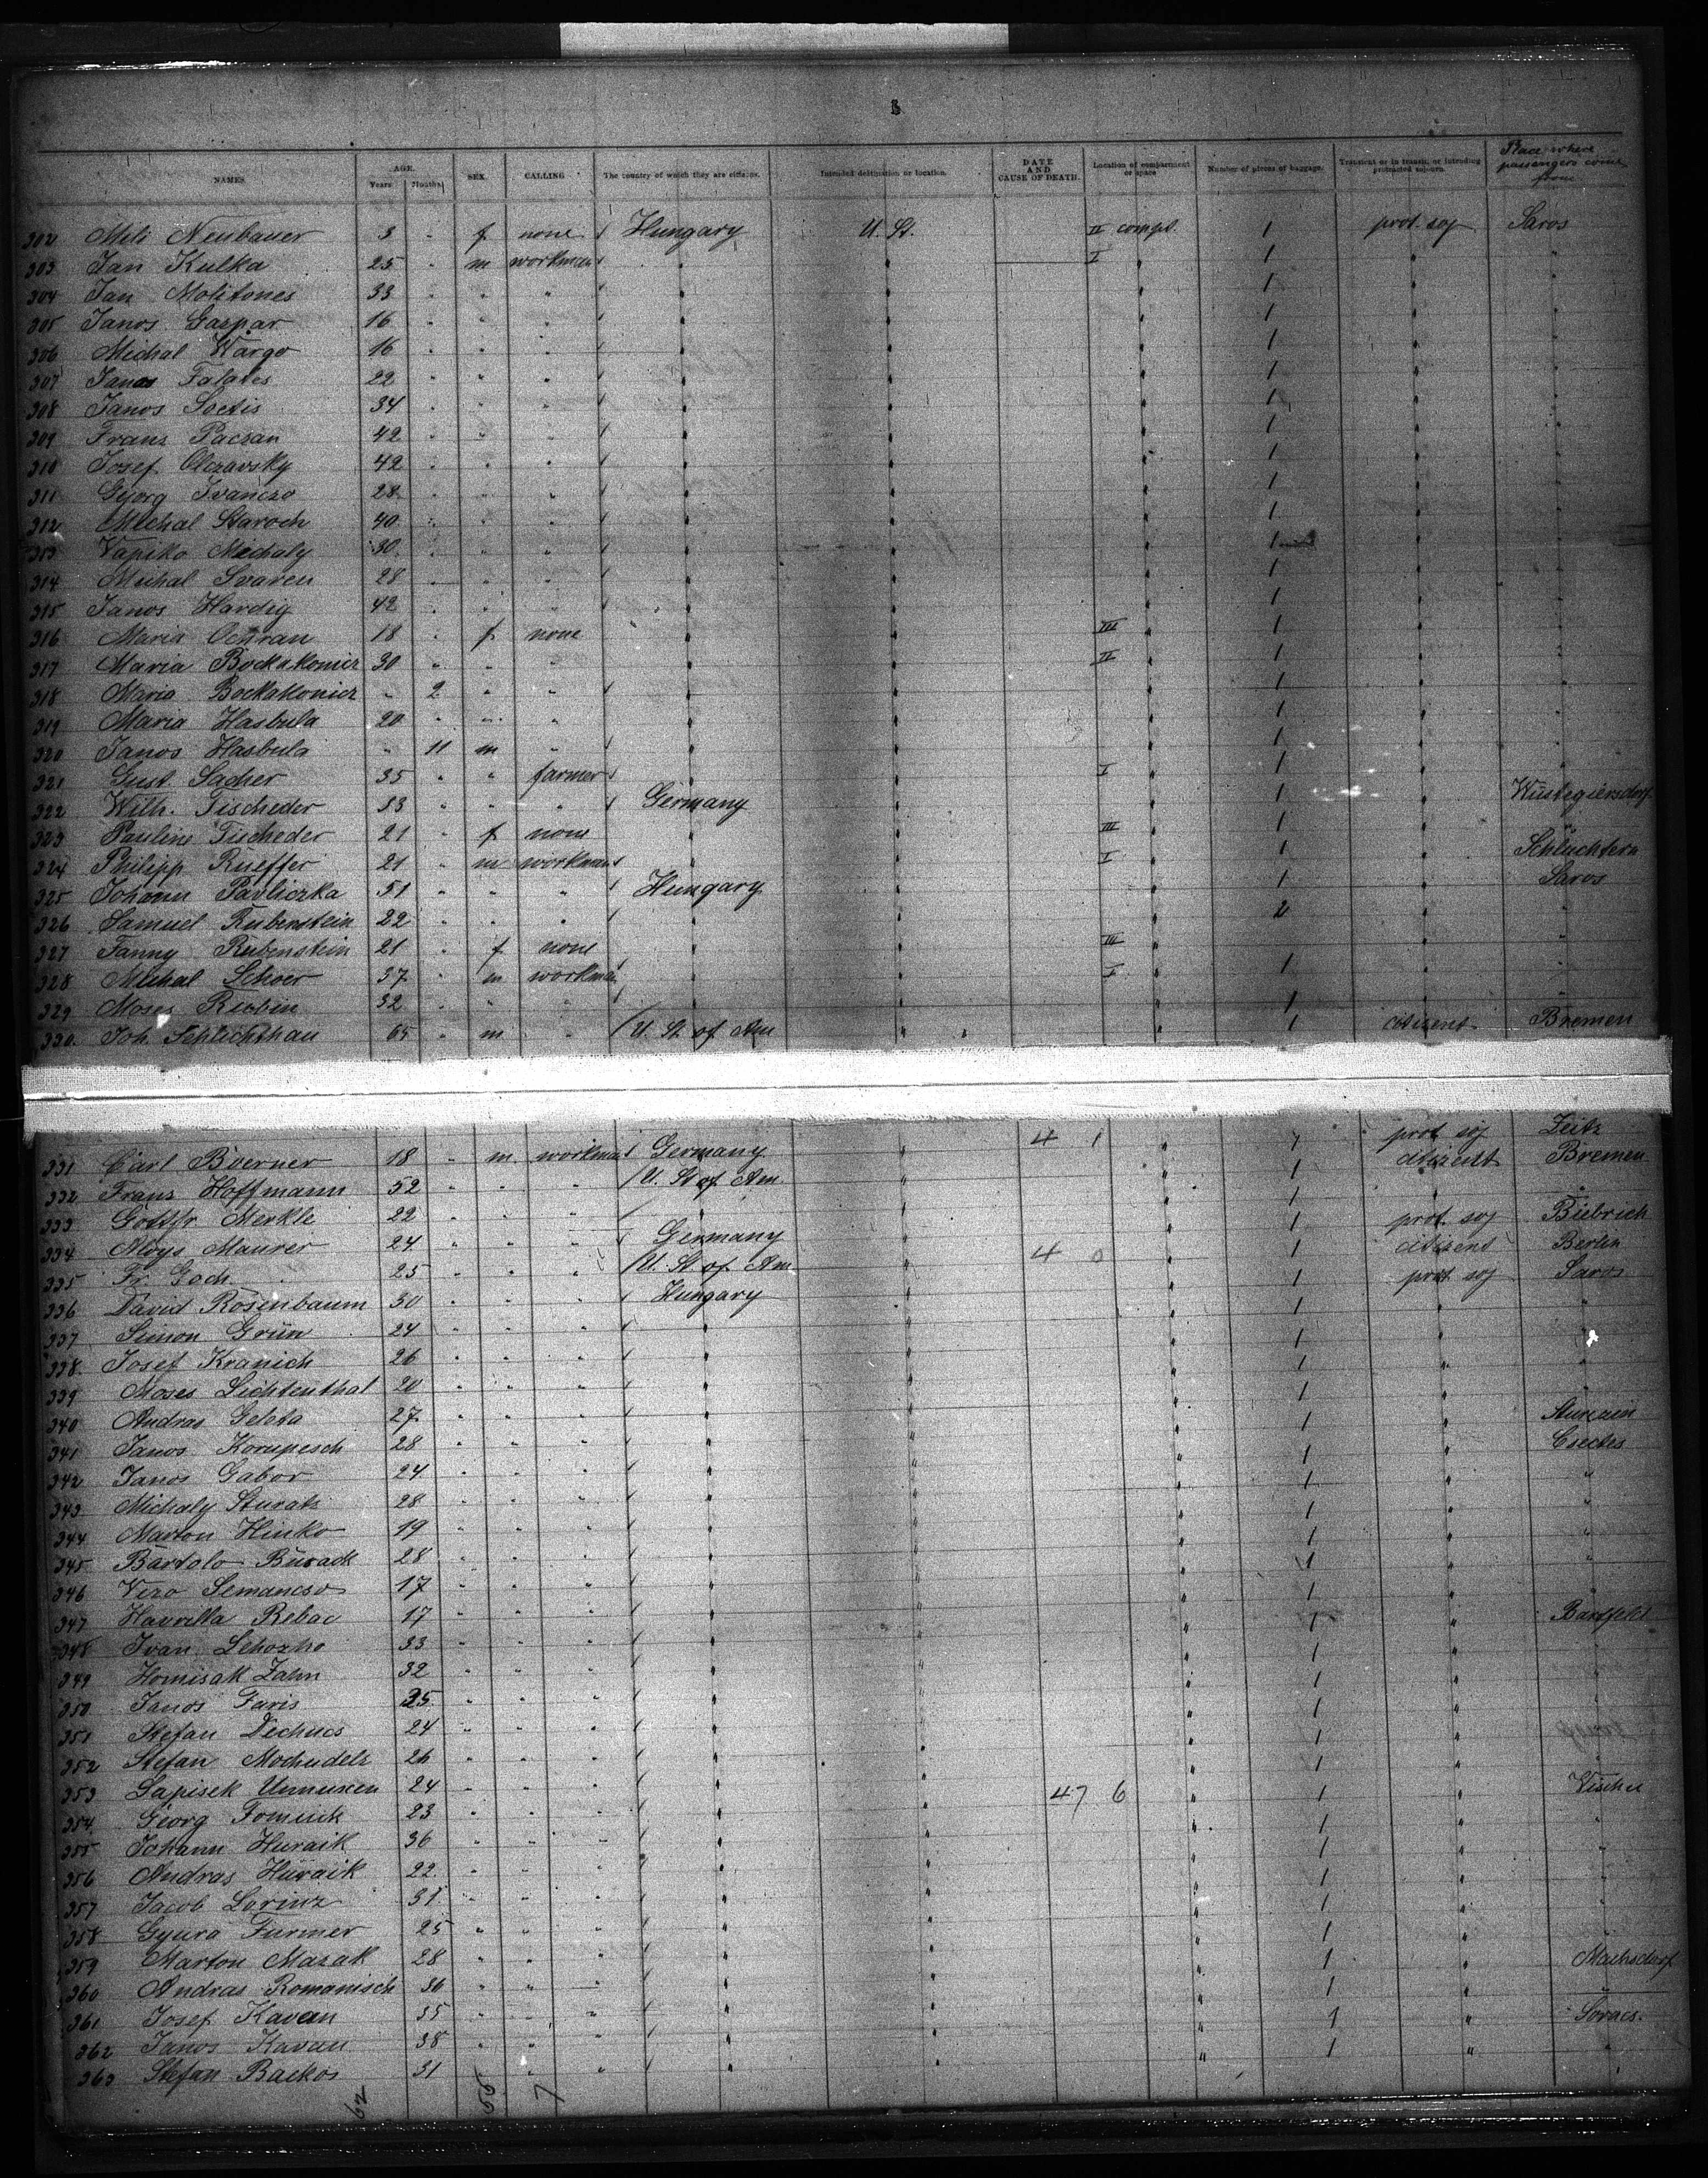 8
NAMES. AGE. Years Months SEX. CALLING The country of which they are citizens. Intended destination or location. DATE AND CAUSE OF DEATH. Location of compartment or space Number of pieces of baggage. Transient or in transit, or intending protracted sojourn. Place where passengers come from
302 Neubauer 3 " f none / Hungary U. St. II compt. 1 prot. soj Saros
303 Jan Kulka 25 " m workman / " " I " 1 " "
304 Jan Molitones 33 " " " / " " " 1 " "
305 Janos Gaspar 16 " " " / " " " 1 " "
306 Michal Wargo 16 " " " / " " " 1 " "
307 Janos 22 " " " / " " " 1 " "
308 Janos 34 " " " / " " " 1 " "
309 Frans Pacsan 42 " " " / " " " 1 " "
310 Josef Olczavsky 42 " " " / " " " 1 " "
311 Gyorg Ivanczo 28 " " " / " " " 1 " "
312 Michal Staroch 40 " " " / " " " 1 " "
313 Michaly 30 " " " / " " " 1 " "
314 Michal 28 " " " / " " " 1 " "
315 Janos Hardig 42 " " " / " " " 1 " "
316 Maria Ochran 18 " f none " " III " 1 " "
317 Maria Bockakonicz 30 " " " " " II " 1 " "
318 Maria Bockakonicz " 2 " " / " " " 1 " "
319 Maria Hasbula 20 " " " " " " 1 " "
320 Janos Hasbula " 11 m " / " " " 1 " "
321 Gust. Sacher 35 " " farmer / " " I " 1 " "
322 Wilh. Tischeder 33 " " " / Germany " " 1 " Wüstegiersdorf
323 Pauline Tischeder 21 " f none " " III " 1 " "
324 Philipp Rueffer 21 " m workman / " " I " 1 " Schluchtern
325 Johann Pavliczka 51 " " " / Hungary " " 1 " Saros
326 Samuel Rubenstein 22 " " " / " " " 2 " "
327 Fanny Rubenstein 21 " f none " " III " " "
328 Michal Schoer 37 " m workman / " " I " 1 " "
329 Moses 32 " " " / " " " 1 " "
330 Joh. Schlichthau 65 " m " / U. St. of Am " " 1 citizent Bremen
331 Carl Boerner 18 " m workman / Germany " 4 1 " 1 prot soj Zeitz
332 Frans Hoffmann 52 " " " / U. St of Am " " 1 citizent Bremen
333 Gottfr Merkle 22 " " " / " " " 1 " "
334 Aloys Maurer 24 " " " / Germany " " 1 prot. soj Biebrich
335 Fr. Goch 25 " " " / U. St. of Am " 4 0 " 1 citizent Berlin
336 David Rosenbaum 30 " " " / Hungary " " 1 prot soj Saros
337 Simon Grün 24 " " " / " " " 1 " "
338 Josef Kranich 26 " " " / " " " 1 " "
339 Moses Lichtenthal 20 " " " / " " " 1 " "
340 Andras Geleta 27 " " " / " " " 1 " "
341 Janos Korupesch 28 " " " / " " " 1 "
342 Janos Gabor 24 " " " / " " " 1 "
343 Michaly Sturatz 28 " " " / " " " 1 " "
344 Marton Hinko 19 " " " / " " " 1 " "
345 Bartolo Burack 28 " " " / " " " 1 " "
346 Vero Semancso 17 " " " / " " " 1 " "
347 Havrilla Rebac 17 " " " / " " " 1 " "
348 Ivan 33 " " " / " " " 1 " Bartfeld
349 Homisak Zahn 32 " " " / " " " 1 " "
350 Janos Furis 25 " " " / " " " 1 " "
351 Stefan Dechucs 24 " " " / " " " 1 " "
352 Stefan 26 " " " / " " " 1 " "
353 24 " " " / " " 47 6 " 1 "
354 Georg Fomcuk 23 " " " / " " " 1 " "
355 Johann Huraik 36 " " " / " " " 1 " "
356 Andras Huraik 22 " " " / " " " 1 " "
357 Jacob Lorinz 31 " " " / " " " 1 " "
358 Gyura Furmer 25 " " " / " " " 1 " "
359 Marton Masak 28 " " " / " " " 1 " "
360 Andras Romanisch 36 " " " / " " " 1 "
361 Josef Kavan 35 " " " / " " " 1 " "
362 Janos Kavan 38 " " " / " " " 1 "
363 Stefan Backos 31 " " " / " " " 1 " "
62 55 7